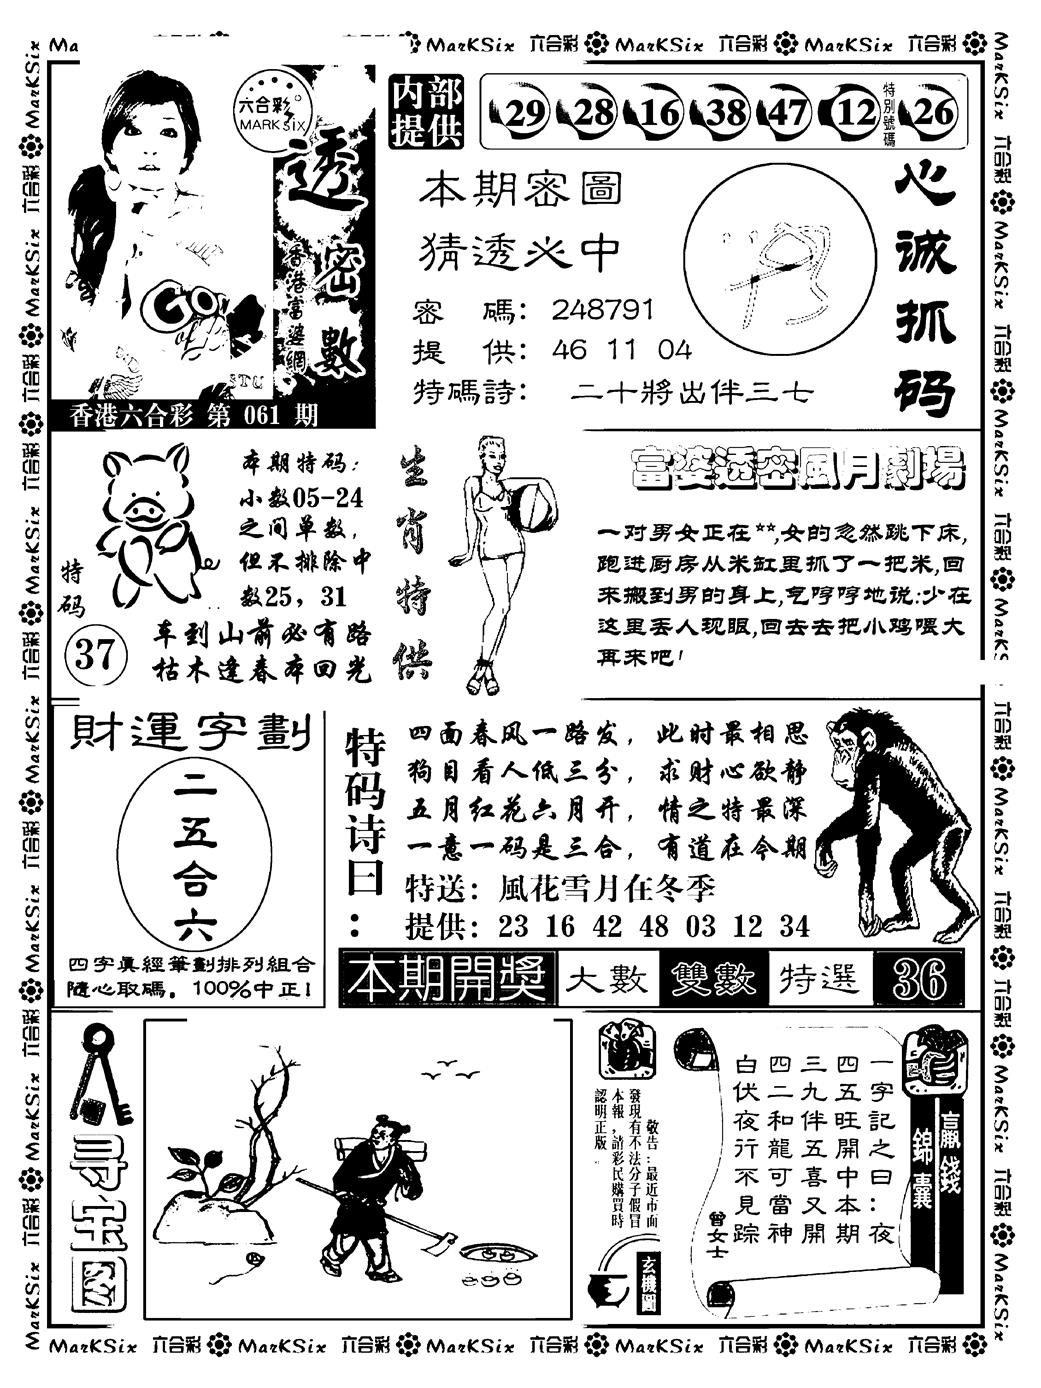 六合彩
MARK SIX
透密數
香港富婆網
香港六合彩 第 061 期
内部
提供
29 28 16 38 47 12 特別號碼 26
本期密圖
猜透必中
密 碼: 248791
提 供: 46 11 04
特碼詩: 二十將出伴三七
心诚抓码
特码
37
本期特码:
小数05-24
之间单数,
但不排除中
数25, 31
车到山前必有路
枯木逢春本回光
生肖特供
富婆透密風月劇場
一对男女正在**,女的忽然跳下床,
跑进厨房从米缸里抓了一把米,回
来搬到男的身上,气哼哼地说:少在
这里丢人现眼,回去去把小鸡喂大
再来吧!
財運字劃
二
五
合
六
四字真經筆劃排列組合
隨心取碼,100%中正!
特码诗曰:
四面春风一路发, 此时最相思
狗目看人低三分, 求财心欲静
五月红花六月开, 情之特最深
一意一码是三合, 有道在今期
特送: 風花雪月在冬季
提供: 23 16 42 48 03 12 34
本期開獎 大數 雙數 特選 36
寻宝图
敬告:最近市面
發現有不法分子假冒
本報,請彩民購買時
認明正版
玄機圖
贏錢
錦囊
一字記之曰:夜
四五旺開中本期
三九伴五喜又開
四二和龍可當神
白伏夜行不見踪
曾女士
MarKSix 六合彩